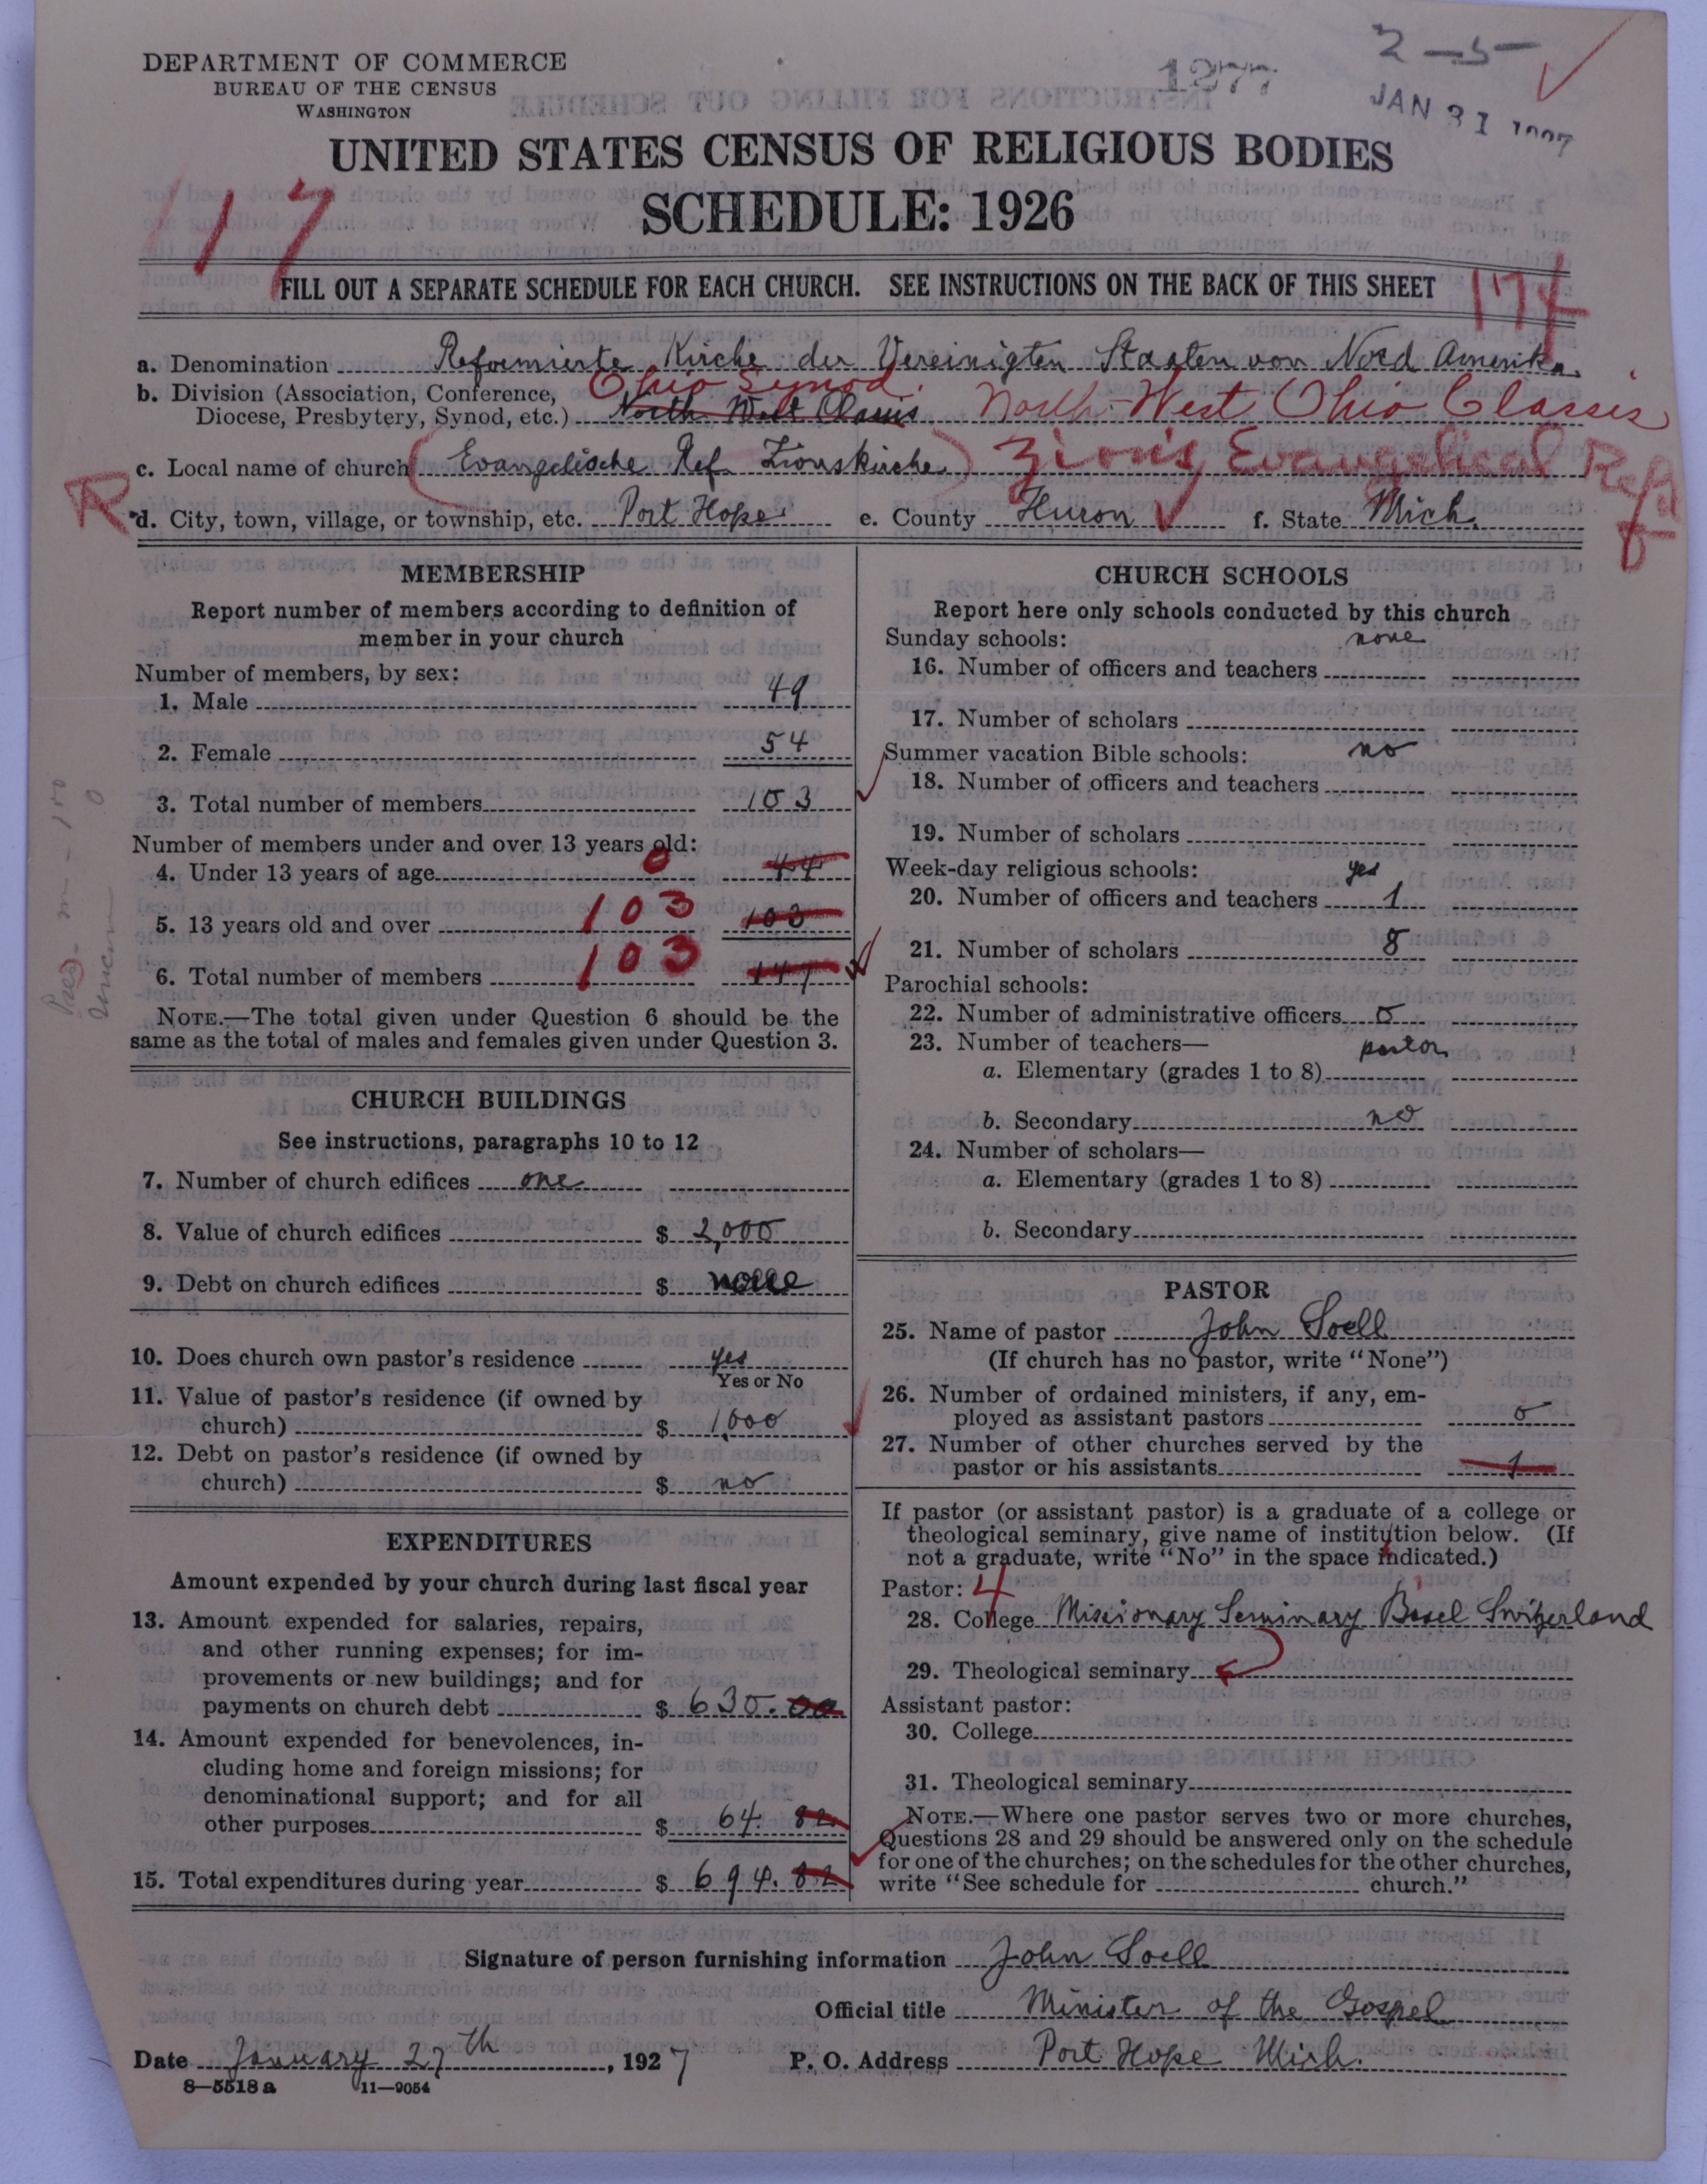 DEPARTMENT OF COMMERCE
BUREAU OF THE CENSUS
WASHINGTON
1277
2-5
JAN 31 1927
UNITED STATES CENSUS OF RELIGIOUS BODIES
SCHEDULE: 1926
117
FILL OUT A SEPARATE SCHEDULE FOR EACH CHURCH. SEE INSTRUCTIONS ON THE BACK OF THIS SHEET
a. Denomination Reformierte Kirche der Vereinigten Staaten von Nord Amerika.
b. Division (Association, Conference, Ohio Synod
Diocese, Presbytery, Synod, etc.) North West Classis North-West Ohio Classis
c. Local name of church (Evangelische Ref. Zionskirche) Zion's Evangelical Refd
R
d. City, town, village, or township, etc. Port Hope e. County Huron f. State Mich.
MEMBERSHIP
Report number of members according to definition of
member in your church
Number of members, by sex:
1. Male 49
2. Female 54
3. Total number of members 103
Number of members under and over 13 years old:
4. Under 13 years of age 0 44
5. 13 years old and over 103 103
6. Total number of members 103 147
NOTE.—The total given under Question 6 should be the
same as the total of males and females given under Question 3.
CHURCH BUILDINGS
See instructions, paragraphs 10 to 12
7. Number of church edifices one
8. Value of church edifices $ 2,000
9. Debt on church edifices $ none
10. Does church own pastor's residence yes
Yes or No
11. Value of pastor's residence (if owned by
church) $ 1,000
12. Debt on pastor's residence (if owned by
church) $ no
EXPENDITURES
Amount expended by your church during last fiscal year
13. Amount expended for salaries, repairs,
and other running expenses; for im-
provements or new buildings; and for
payments on church debt $ 630.00
14. Amount expended for benevolences, in-
cluding home and foreign missions; for
denominational support; and for all
other purposes $ 64.82
15. Total expenditures during year $ 694.82
CHURCH SCHOOLS
Report here only schools conducted by this church
Sunday schools: none
16. Number of officers and teachers
17. Number of scholars
Summer vacation Bible schools: no
18. Number of officers and teachers
19. Number of scholars
Week-day religious schools: yes
20. Number of officers and teachers 1
21. Number of scholars 8
Parochial schools:
22. Number of administrative officers 0
23. Number of teachers— pastor
a. Elementary (grades 1 to 8)
b. Secondary no
24. Number of scholars—
a. Elementary (grades 1 to 8)
b. Secondary
PASTOR
25. Name of pastor John Soell
(If church has no pastor, write "None")
26. Number of ordained ministers, if any, em-
ployed as assistant pastors 0
27. Number of other churches served by the
pastor or his assistants 1
If pastor (or assistant pastor) is a graduate of a college or
theological seminary, give name of institution below. (If
not a graduate, write "No" in the space indicated.)
Pastor: 4
28. College Missionary Seminary Basel Switzerland
29. Theological seminary
Assistant pastor:
30. College
31. Theological seminary
NOTE.—Where one pastor serves two or more churches,
Questions 28 and 29 should be answered only on the schedule
for one of the churches; on the schedules for the other churches,
write "See schedule for church."
Signature of person furnishing information John Soell
Official title Minister of the Gospel
Date January 27th, 1927 P. O. Address Port Hope Mich.
8—5518 a 11—9054